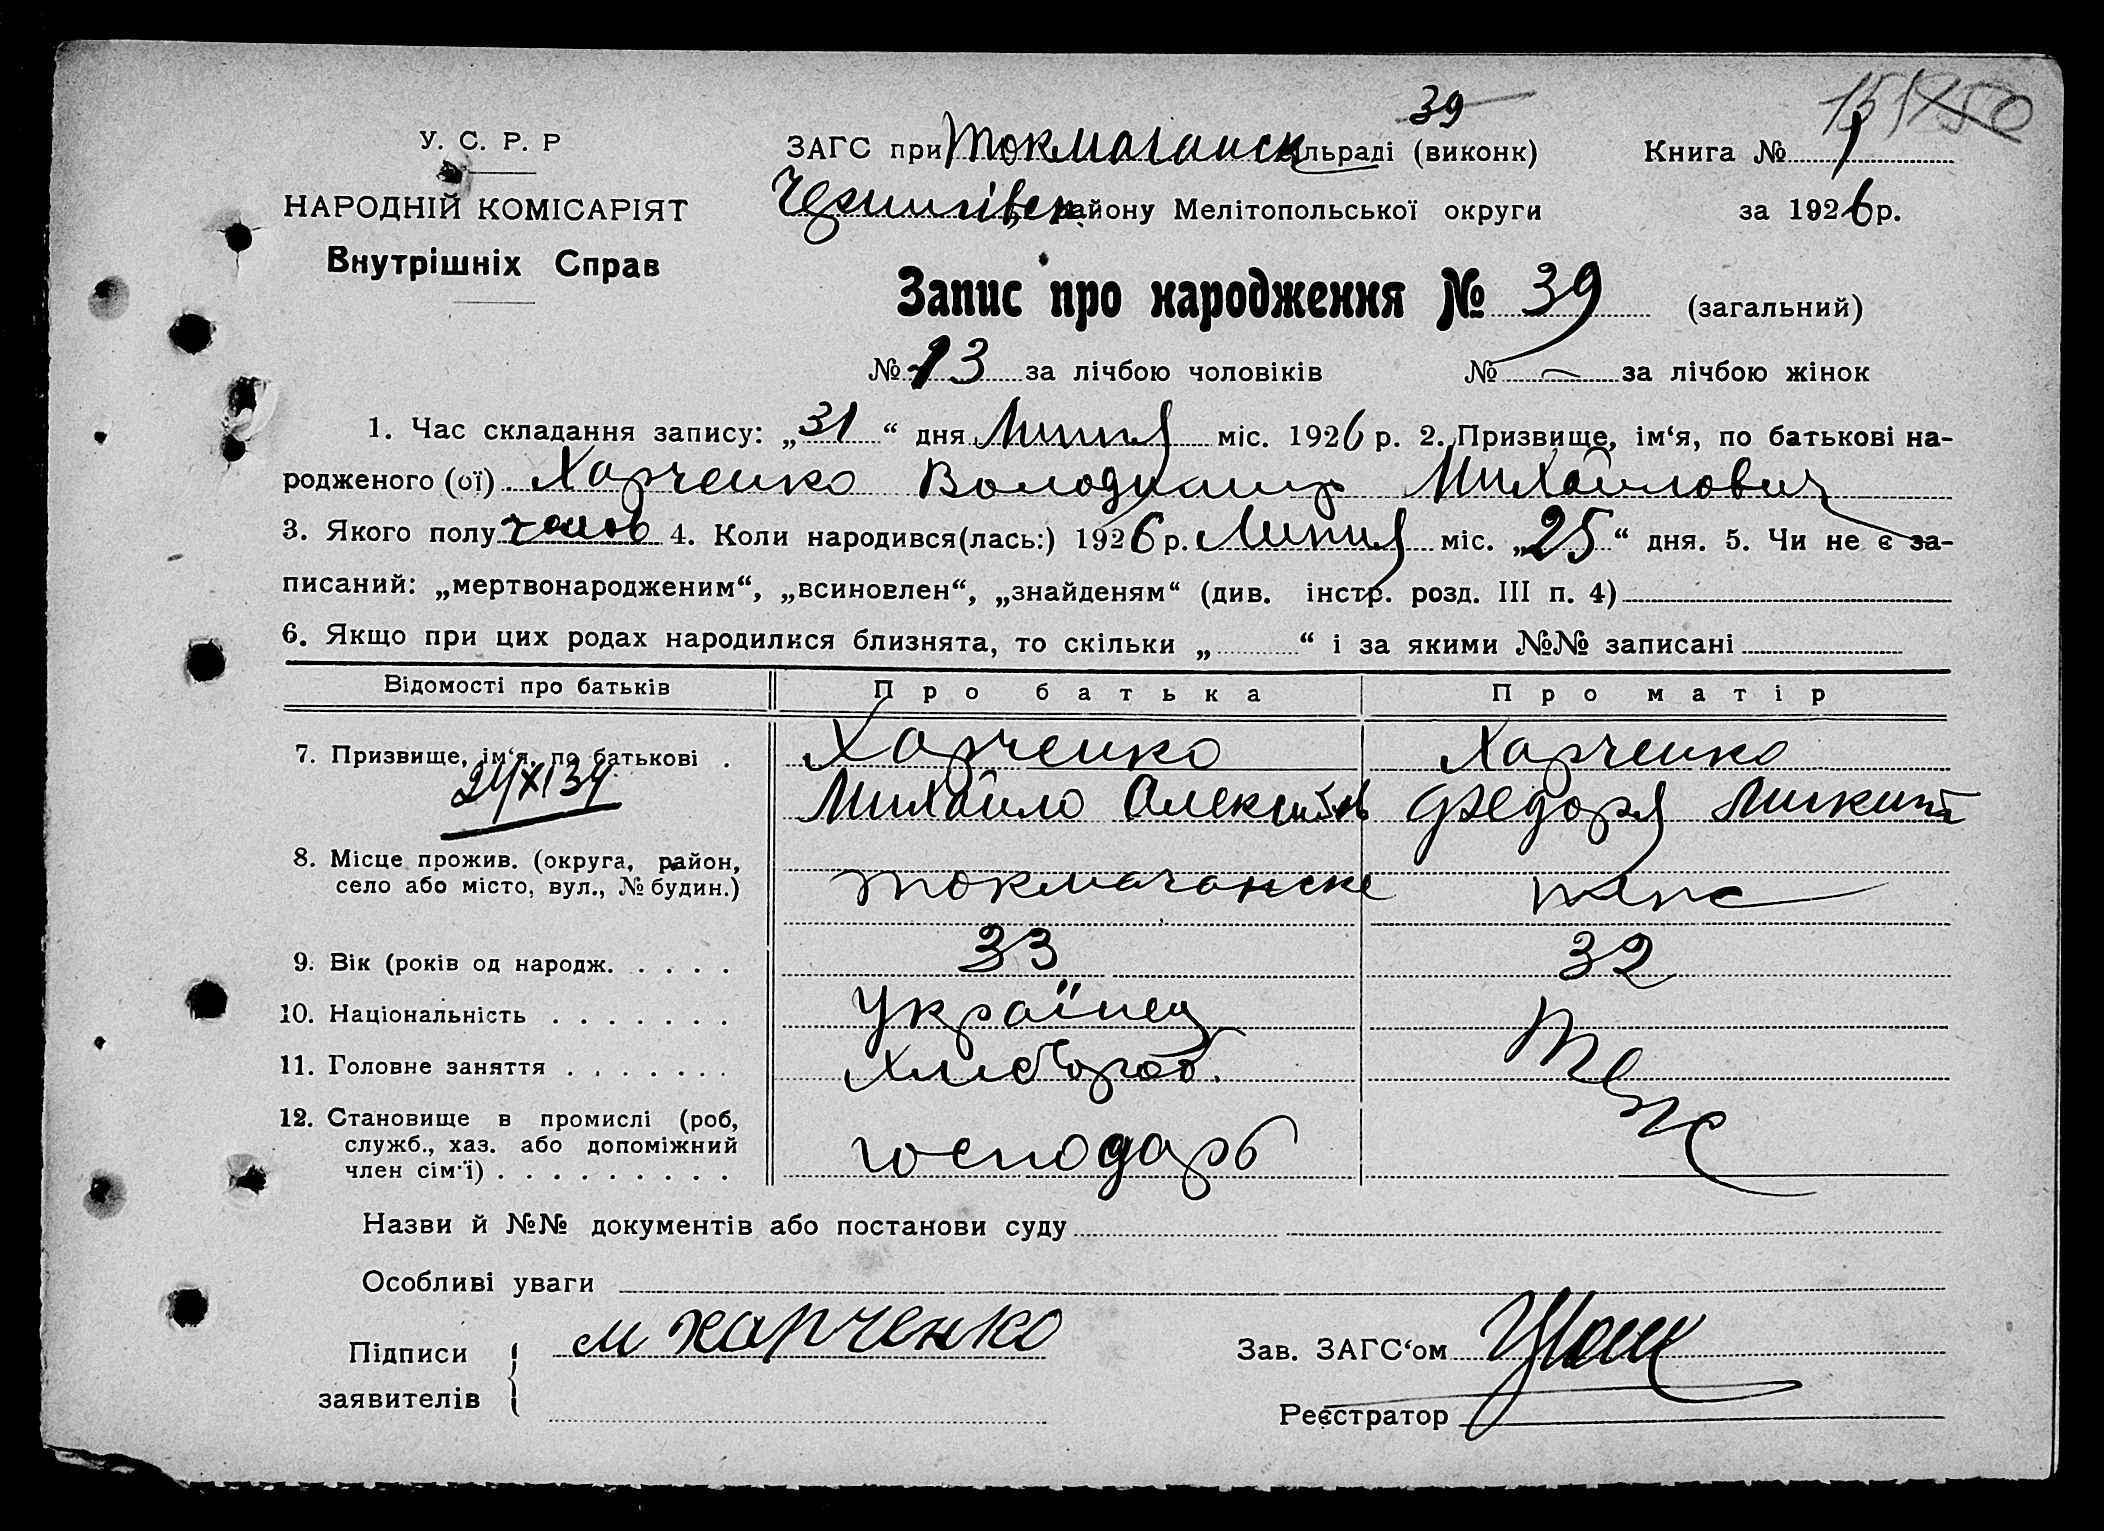 39
151250
У. С. Р. Р
ЗАГС при Токмачанск ільраді (виконк)
Книга № 1
НАРОДНІЙ КОМІСАРІЯТ
Чернигівск району Мелітопольської округи
за 1926 р.
Внутрішніх Справ
Запис про народження № 39 (загальний)
№ 13 за лічбою чоловіків № — за лічбою жінок
1. Час складання запису: „31“ дня Липня міс. 1926 р. 2. Призвище, ім‘я, по батькові на-
родженого (ої) Харченко Володимир Михайлович
3. Якого полу чолов 4. Коли народився(лась:) 1926 р. Липня міс. „25“ дня. 5. Чи не є за-
писаний: „мертвонародженим“, „всиновлен“, „знайденям“ (див. інстр. розд. III п. 4)
6. Якщо при цих родах народилися близнята, то скільки „ “ і за якими №№ записані
Відомості про батьків Про батька Про матір
7. Призвище, ім‘я, по батькові . Харченко Харченко
24/XI 34 Михайло Олексійов Федоря Микит
8. Місце прожив. (округа, район,
село або місто, вул., № будин.) Токмачанске теж
9. Вік (років од народж. . . . . 33 32
10. Національність . . . . . . . Українец Теж
11. Головне заняття . . . . . . . Хлибороб.
12. Становище в промислі (роб,
служб., хаз. або допоміжний
член сім‘ї) . . . . . . . . . господарь
Назви й №№ документів або постанови суду
Особливі уваги
Підписи м харченко
заявителів
Зав. ЗАГС‘ом
Реєстратор